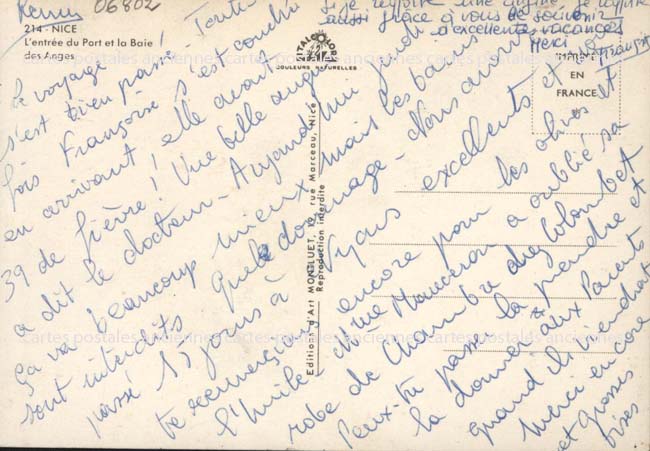 Rennes 06802
214 - NICE
L'entrée du Port et la Baie
des Anges
ITALCOLOR
COULEURS NATURELLES
IMPRIMÉ
EN
FRANCE
Editions d'Art MONTLUET, 19, rue Marceau, Nice
Reproduction interdite
Cartes postales anciennes
Le voyage
s'est bien passé! Toute
fois Françoise s'est couchée
en arrivant, elle avait
39 de fièvre! Une belle angine
a dit le docteur - Aujourd'hui jeudi
ça va beaucoup mieux mais les bains
sont interdits. Quel dommage - Nous avons
passé 15 jours à Nyons excellents et
te remercions encore pour les olives et
l'huile. Mme a oublié sa
robe de chambre chez Colombet
Peux-tu passer la prendre et
la donner aux Parents
quand ils viendront
Merci encore
et grosses
bises
si je soupire
aussi grâce à vous ce souvenir
d'excellentes vacances
Merci
Françoise